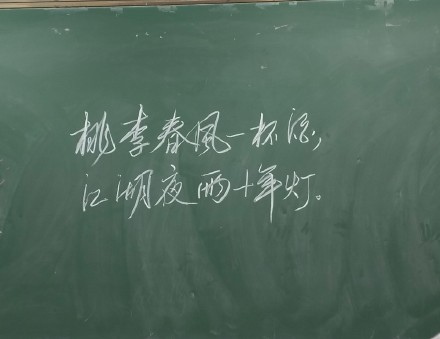 桃李春風一杯酒，
江湖夜雨十年灯。